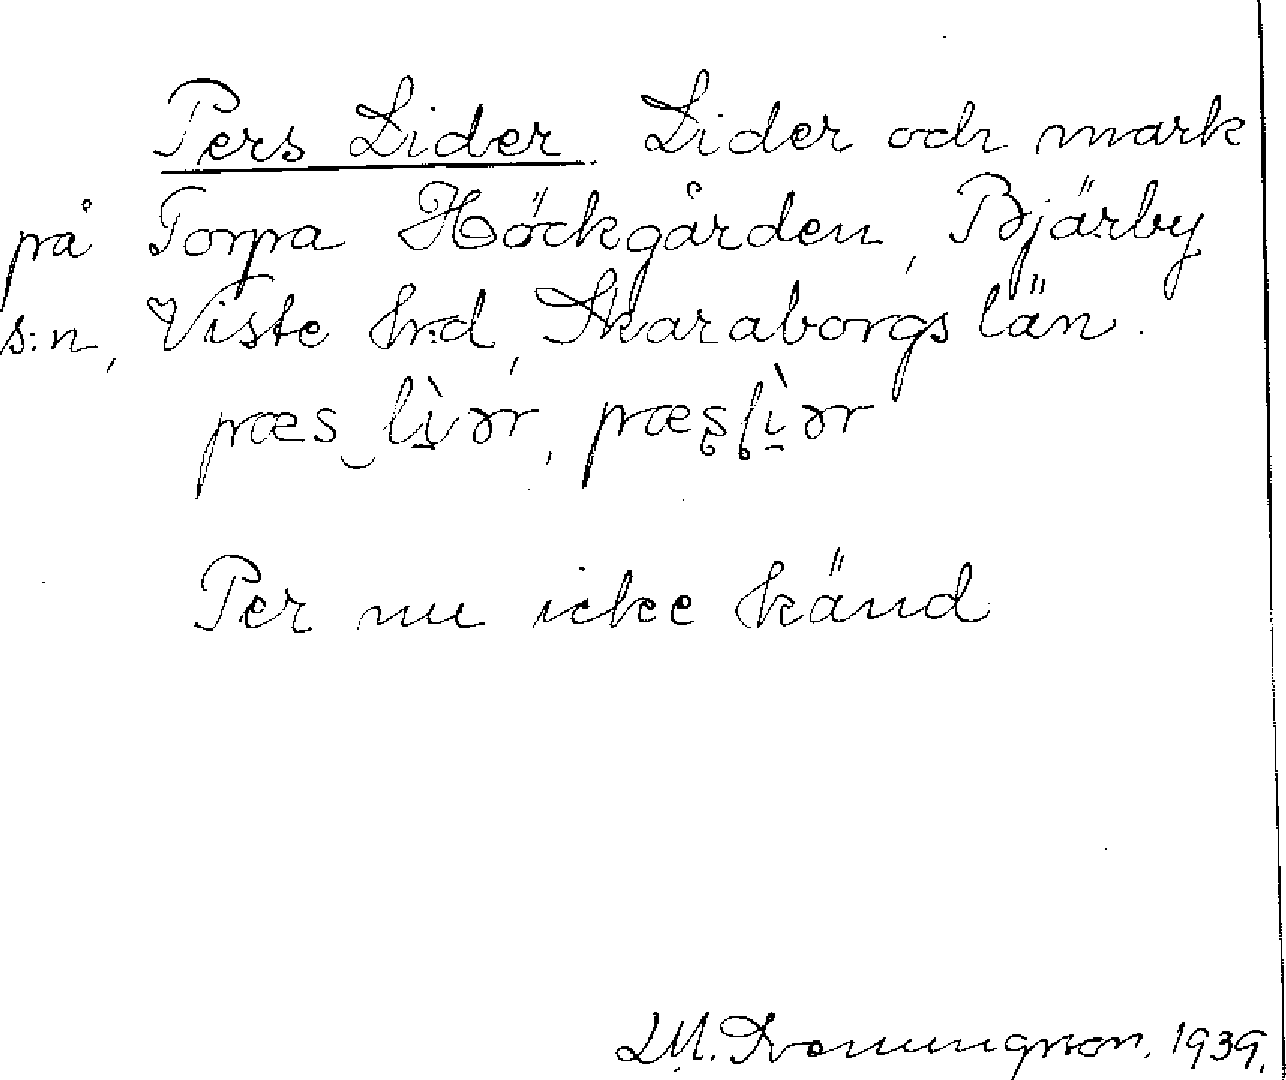 Pers Lider Lider och mark
på Torpa Höckgården, Bjärby
s:n, Viste hrd, Skaraborgs län.
præs‿lìərr, præʂɭìərr
Per nu icke känd
1939.